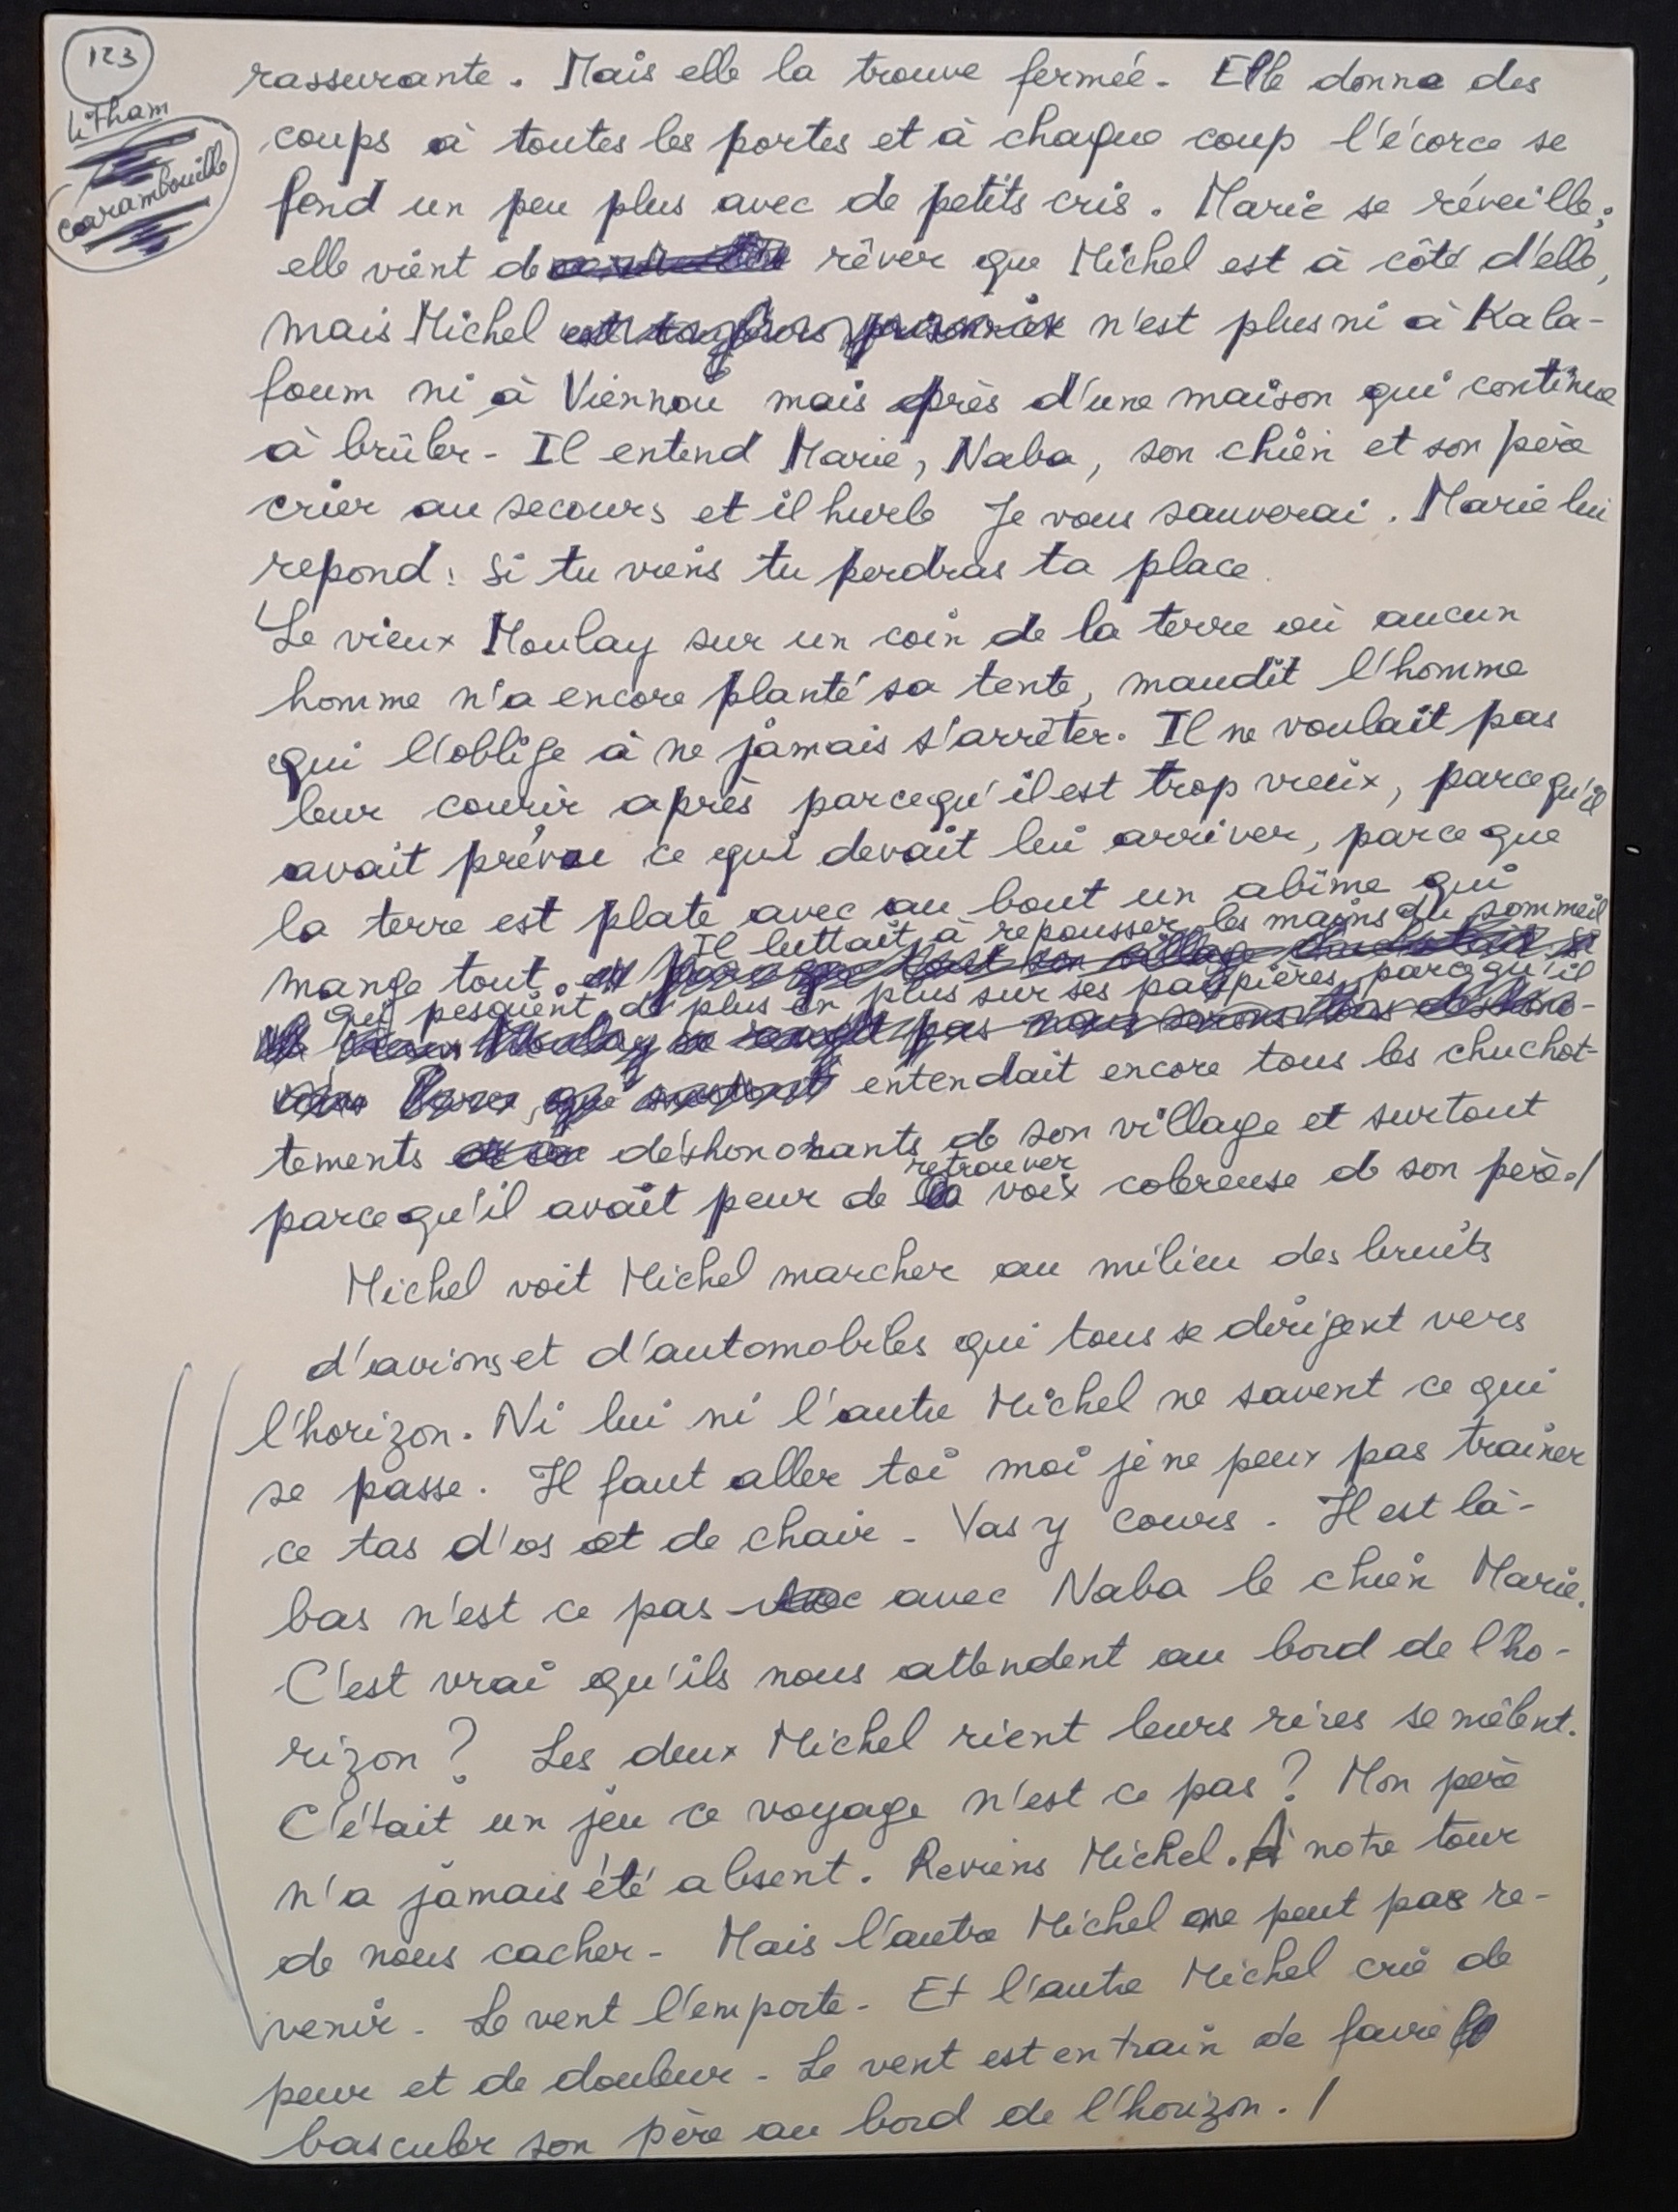 123
litham
carambouille
rassurante. Mais elle la trouve fermée. Elle donna des
coups à toutes les portes et à chaque coup l'écorce se
fend un peu plus avec de petits cris. Marie se réveille;
elle vient de rêver que Michel est à côté d'elle,
mais Michel est toujours prisonnier n'est plus ni à Kala-
foum ni à Viennoü mais près d'une maison qui continue
à brûler. Il entend Marie, Naba, son chien et son père
crier au secours et il hurle Je vous sauverai. Marie lui
repond: Si tu viens tu perdras ta place.
Le vieux Moulay sur un coin de la terre où aucun
homme n'a encore planté sa tente, maudit l'homme
qui l'oblige à ne jamais s'arrêter. Il ne voulait pas
leur courir après parcequ'il est trop vieux, parcequ'il
avait prévu ce qui devait lui arriver, parceque
la terre est plate avec au bout un abîme qui
mange tout. Il luttait à repousser les mains du sommeil
qui pesaient de plus en plus sur ses paupières, parcequ'il
entendait encore tous les chuchot-
tements déshonorants de son village et surtout
parcequ'il avait peur de retrouver la voix colereuse de son père./
Michel voit Michel marcher au milieu des bruits
d'avions et d'automobiles qui tous se dirigent vers
l'horizon. Ni lui ni l'autre Michel ne savent ce qui
se passe. Il faut aller toi moi je ne peux pas trainer
ce tas d'os et de chair. Vas y cours. Il est là-
bas n'est ce pas avec Naba le chien Marie.
C'est vrai qu'ils nous attendent au bord de l'ho-
rizon? Les deux Michel rient leurs rires se mêlent.
C'était un jeu ce voyage n'est ce pas? Mon père
n'a jamais été absent. Reviens Michel. A notre tour
de nous cacher. Mais l'autre Michel ne peut pas re-
venir. Le vent l'emporte. Et l'autre Michel crie de
peur et de douleur. Le vent est en train de faire
basculer son père au bord de l'horizon./